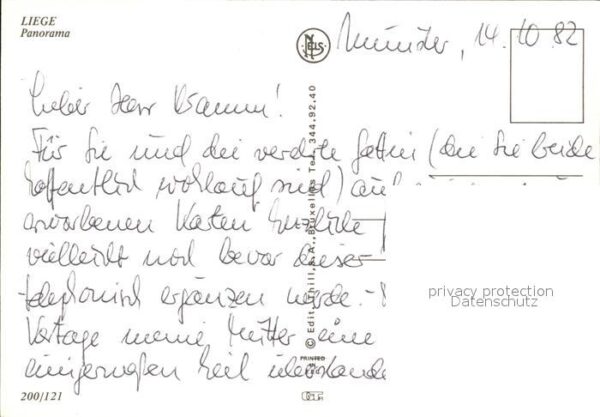 LIEGE
Panorama
NELS
Münster, 14. 10. 82
Lieber Herr Kramm!
Für Sie und die verehrte Gattin (die Sie beide
hoffentlich wohlauf sind) auf
erworbenen Karten herzliche
vielleicht noch bevor dieser
telephonisch ergänzen werde. -
Vortage meine Mutter eine
einigermaßen heil überstande
© Edit. Thill, S.A., Bruxelles Tel. 344.92.40
PRINTED
privacy protection
Datenschutz
200/121